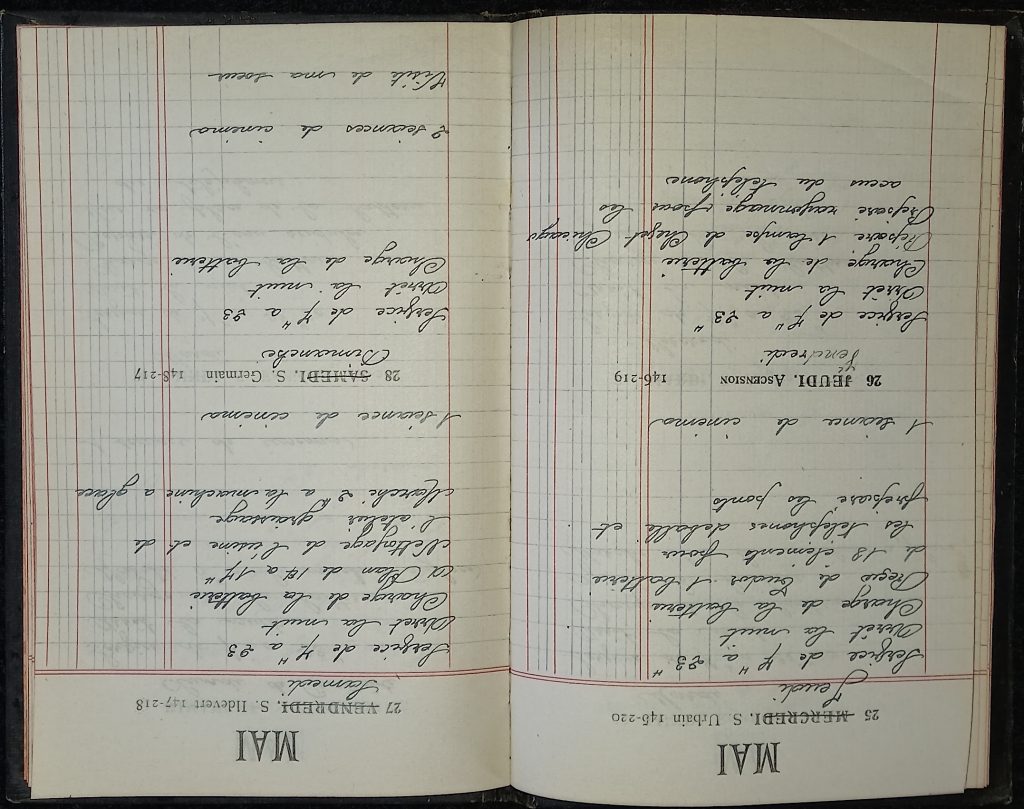 MAI
25 MERCREDI. S. Urbain 145-220
Jeudi
Service de 7H a 23H
Arrêt la nuit
Charge de la batterie
Reçu de Tudor 1 batterie
de 13 elements pour
les telephones deballe et
prepare les ponts
1 séance de cinema
26 JEUDI. ASCENSION 146-219
Vendredi
Service de 7H a 23H
Arrêt la nuit
Charge de la batterie
Réparé 1 lampe de Chevet Chicago
Preparé rayonnage pour les
accus du téléphone
MAI
27 VENDREDI. S. Ildevert 147-218
Samedi
Service de 7H a 23
Arret la nuit
Charge de la batterie
a Plan de 14 a 17H
Nettoyage de l'usine et de
l'atelier graissage
Marche 2H a la machine a glace
1 séance de cinema
28 SAMEDI. S. Germain 148-217
Dimanche
Service de 7H a 23
Arrêt la nuit
Charge de la batterie
2 séances de cinema
Visite de ma soeur